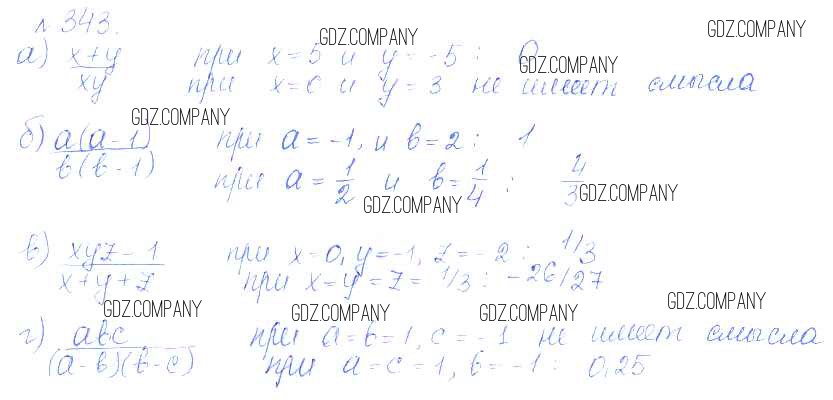 № 343.
а) (x+y)/(xy) при x=5 и y=-5 : 0
при x=0 и y=3 не имеет смысла
б) a(a-1)/(b(b-1)) при a=-1, и b=2 : 1
при a=1/2 и b=1/4 : 4/3
в) (xyz-1)/(x+y+z) при x=0, y=-1, z=-2 : 1/3
при x=y=z=1/3 : -26/27
г) abc/((a-b)(b-c)) при a=b=1, c=-1 не имеет смысла
при a=c=1, b=-1 : 0,25
GDZ.COMPANY
GDZ.COMPANY
GDZ.COMPANY
GDZ.COMPANY
GDZ.COMPANY
GDZ.COMPANY
GDZ.COMPANY
GDZ.COMPANY
GDZ.COMPANY
GDZ.COMPANY